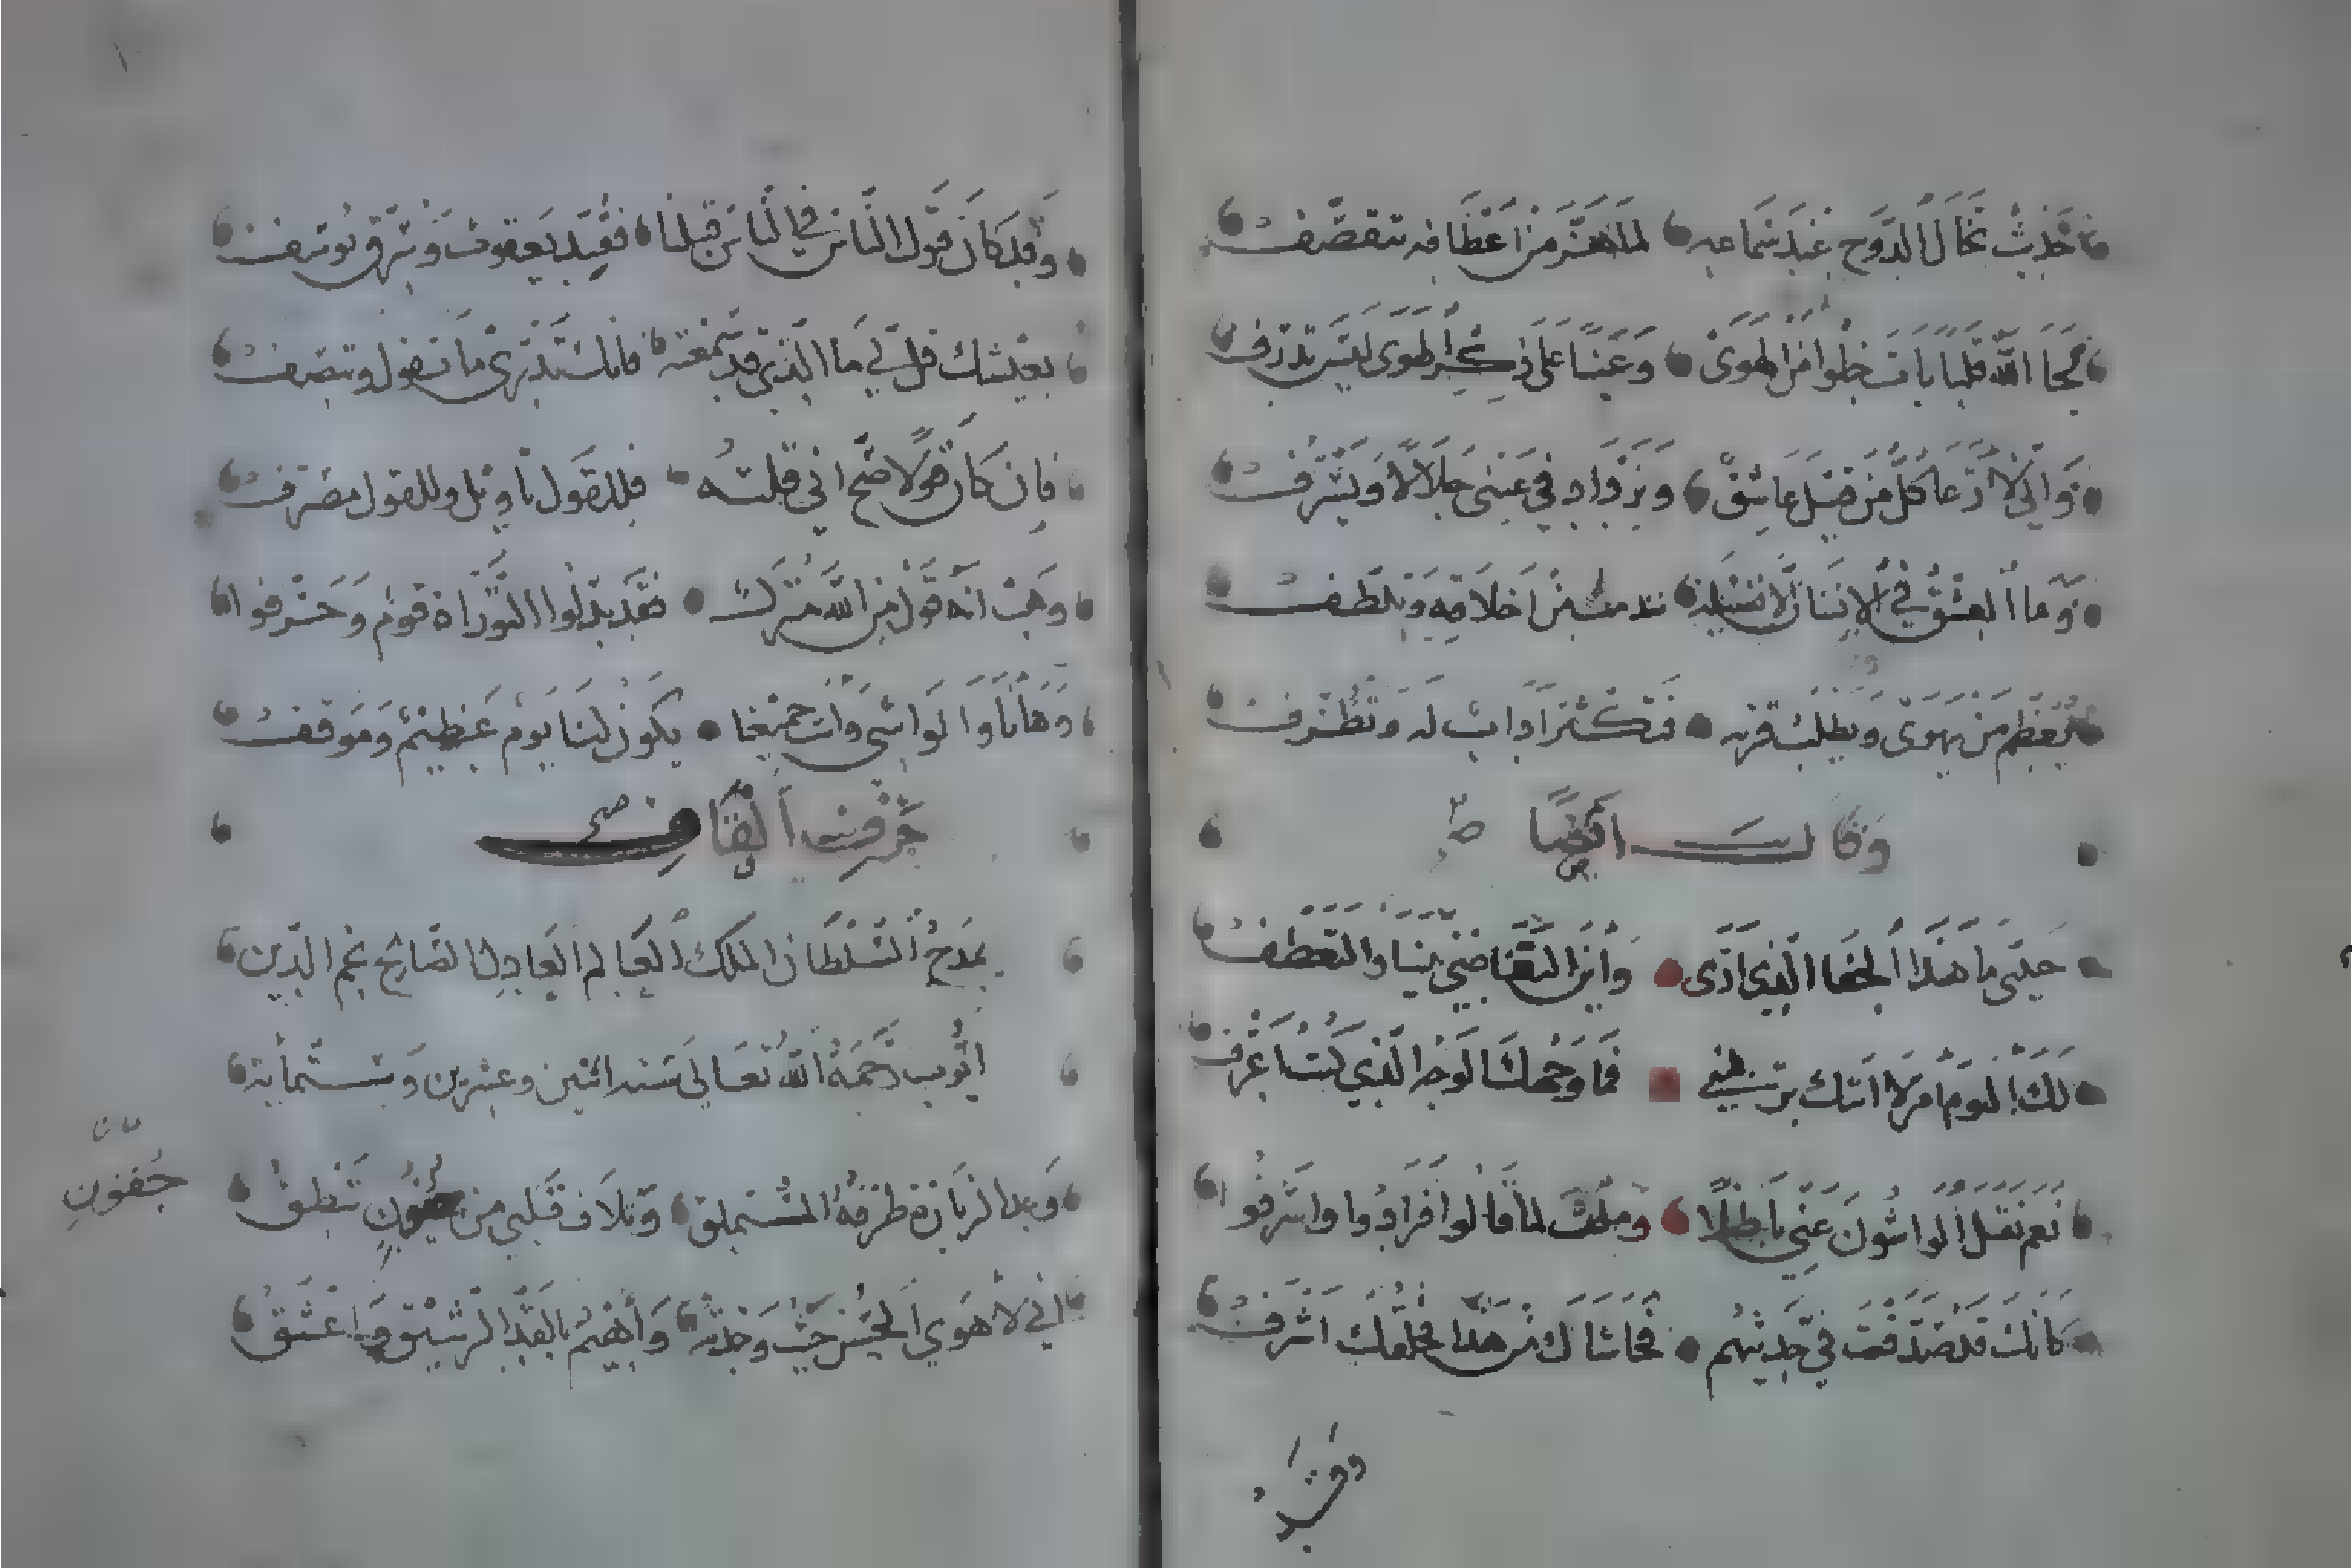 حديث تخال الدوح عند سماعه لما هز من أعطافه تتقصف
لحا الله قلبا بات خلوا من الهوى وعينا على ذكر الهوى ليس تذرف
واني لأدعا كل من قيل عاشق ويزداد في عيني جلالا ويشرف
وما العشق في الإنسان إلا فضيلة تدمث من أخلاقه وتلطف
يعظم من يهوى ويطلب قربه فتكثر آداب له وتظرف
وقال أيضا
حبيبي ما هذا الجفا الذي أرى وأين التغاضي بيننا والتعطف
لك اليوم أمر لا أشك يريبني فما وجهك الوجه الذي كنت أعرف
نعم نقل الواشون عني باطلا وملت لما قالوا فزادوا وأسرفوا
كأنك قد صدقت في حديثهم فحاشاك من هذا فخلقك أشرف
وقد
وقد كان قول الناس في الناس قبلنا ففند يعقوب وسرق يوسف
بعيشك قل لي ما الذي قد سمعته فانك تدري ما تقول وتنصف
فإن كان قولا صح اني قلته فللقول تأويل وللقول مصرف
وهب أنه قول من الله منزل فقد بدلوا التوراة قوم وحرفوا
وها أنا والواشي وأنت جميعا يكون لنا يوم عظيم وموقف
حرف القاف
يمدح السلطان الملك العالم العادل الصالح نجم الدين
أيوب رحمه الله تعالى سنة اثنين وعشرين وستمائة
وعد الزيارة طرفه المتملق وتلاف قلبي من جفون تنطق
جفون
إني لأهوي الحسن حيث وجدته وأهيم بالقد الرشيق وأعشق